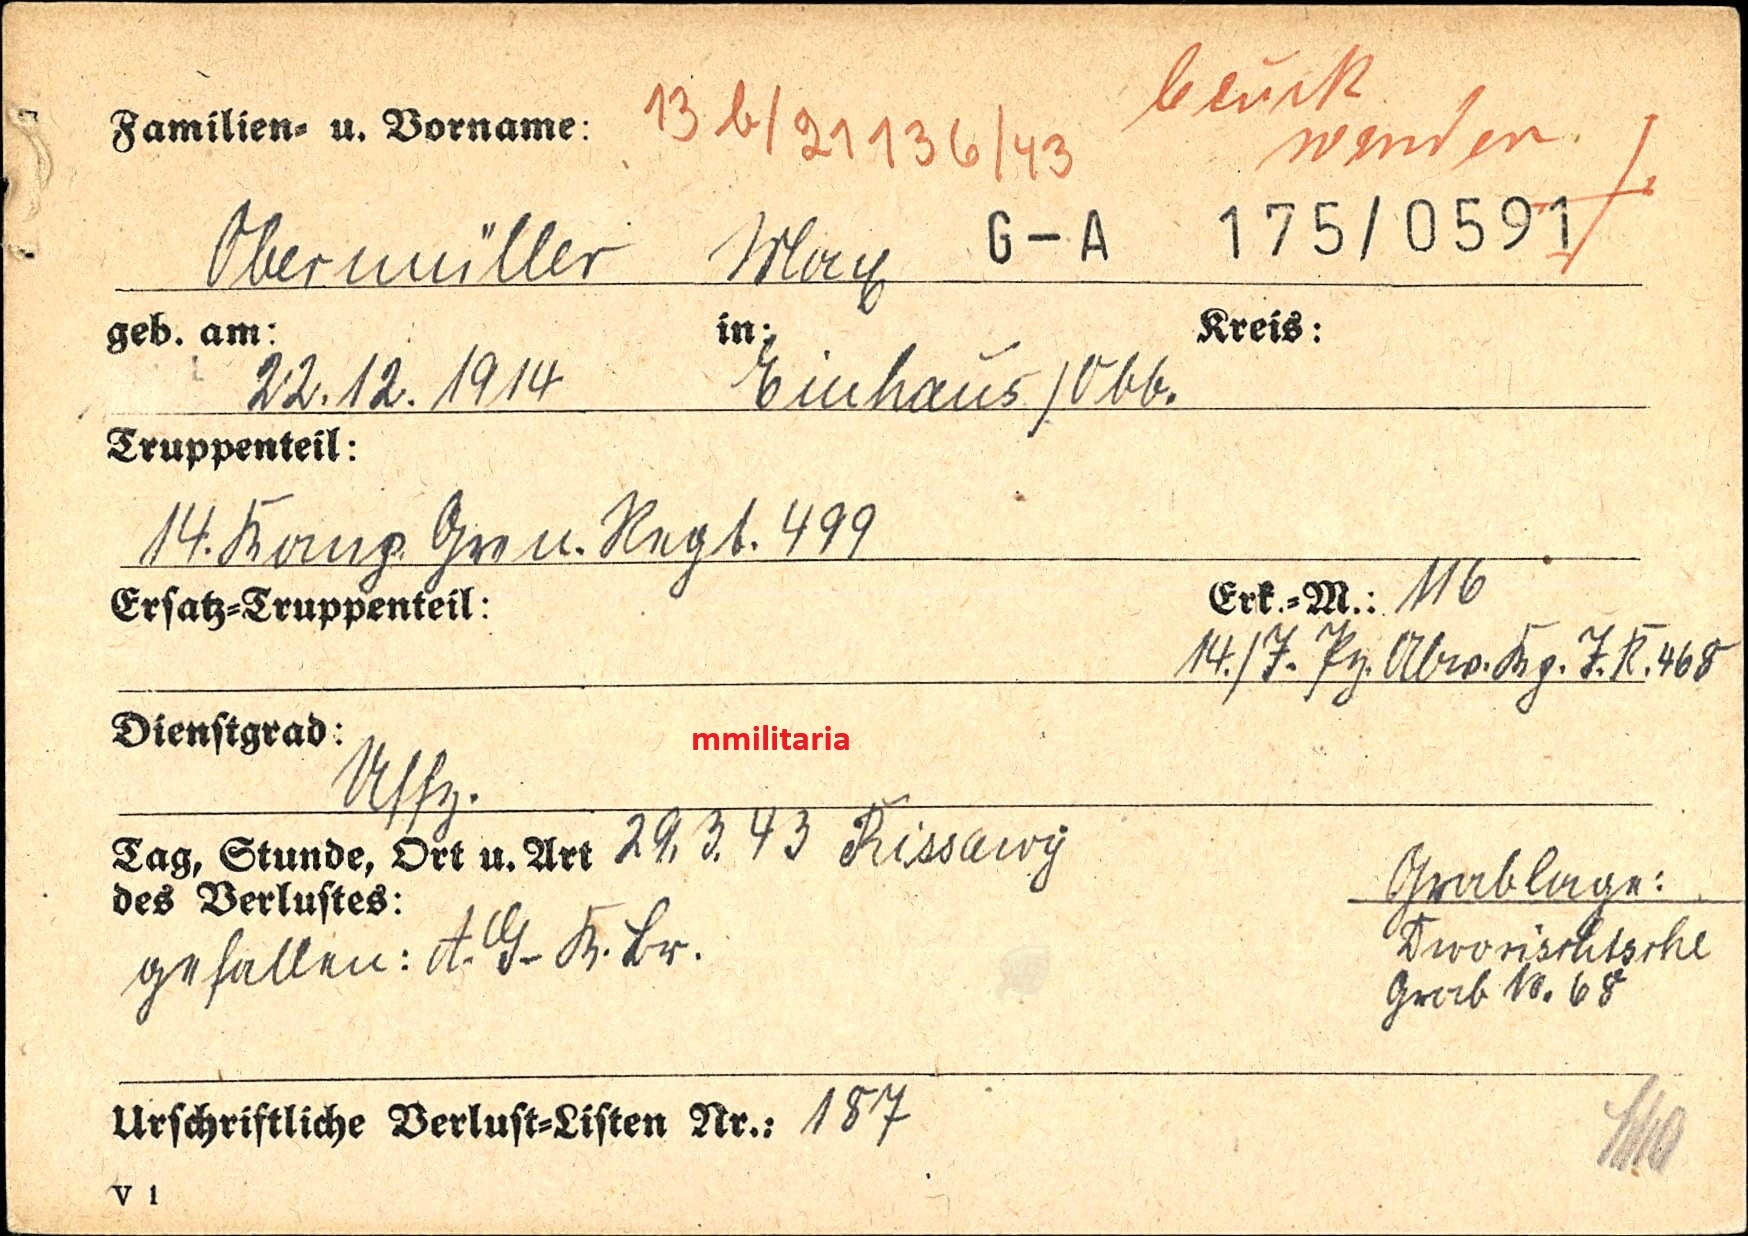 Familien- u. Vorname: 13 b/21136/43
wenden
Obermüller Max G-A 175/0591
geb. am: in: Kreis:
22.12.1914 Einhaus/Obb.
Truppenteil:
14. Komp. Gren. Regt. 499
Ersatz-Truppenteil: Erk.-M.: 116
14./J. Pz. Abw. Kp. J.R. 468
Dienstgrad:
Uffz.
mmilitaria
Tag, Stunde, Ort u. Art 29.3.43 Kissawy
des Verlustes: Grablage:
gefallen: A.G- K. Br. Dworischtsche
Grab N. 68
Urschriftliche Verlust-Listen Nr.: 187
V 1